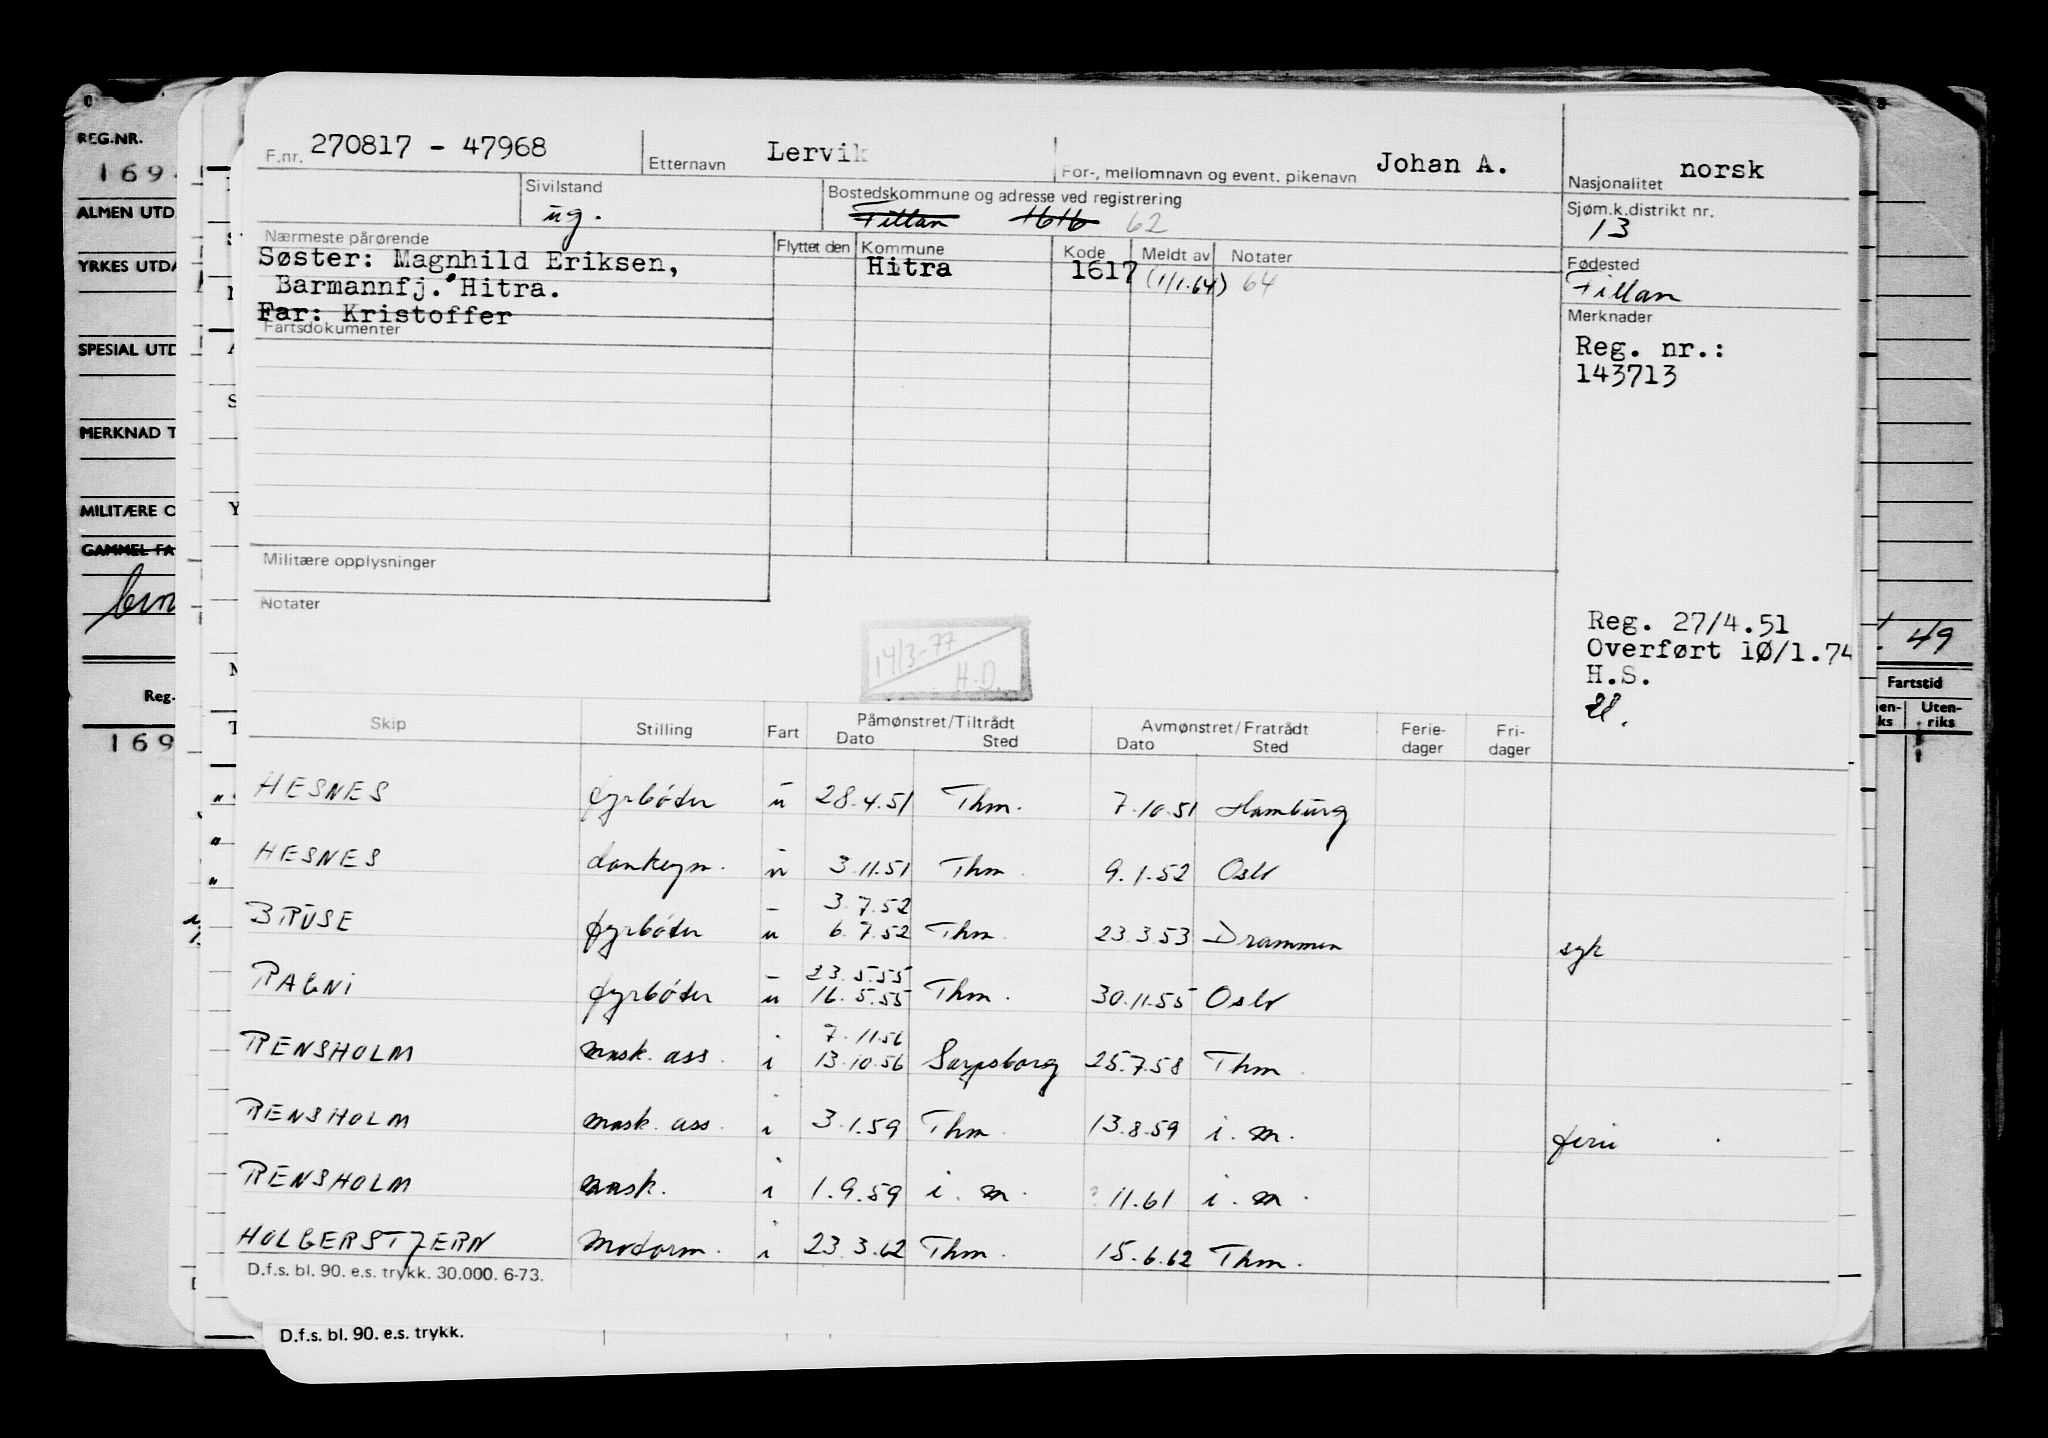 REG.NR.
169
ALMEN UTD
YRKES UTDA
SPESIAL UTD
MERKNAD T
MILITÆRE O
GAMMEL FA
Reg.
169
F.nr. 270817 - 47968 Etternavn Lervik For-, mellomnavn og event. pikenavn Johan A. Nasjonalitet norsk
Sivilstand ug.
Bostedskommune og adresse ved registrering
Fillan 1616 62
Sjøm.k.distrikt nr.
13
Nærmeste pårørende
Søster: Magnhild Eriksen,
Barmannfj. Hitra.
Far: Kristoffer
Flyttet den Kommune Kode Meldt av Notater
Hitra 1617 (1/1.64) 64
Fødested
Fillan
Merknader
Reg. nr.:
143713
Fartsdokumenter
Militære opplysninger
Notater
14/3-77
H.D.
Reg. 27/4.51
Overført 10/1.74
H.S.
49
Fartstid
Uten-
riks
Skip Stilling Fart Påmønstret/Tiltrådt Avmønstret/Fratrådt Ferie-dager Fri-dager
Dato Sted Dato Sted
HESNES fyrbøter u 28.4.51 Thm. 7.10.51 Hamburg
HESNES donkeym. u 3.11.51 Thm. 9.1.52 Oslo
- 3.7.52
BRUSE fyrbøter u 6.7.52 Thm. 23.3.53 Drammen syk
- 23.5.55
RAGNI fyrbøter u 16.5.55 Thm. 30.11.55 Oslo
7.11.56
RENSHOLM mask. ass. i 13.10.56 Sarpsborg 25.7.58 Thm.
RENSHOLM mask. ass. i 3.1.59 Thm. 13.8.59 i.m. ferie
RENSHOLM mask. i 1.9.59 i.m. ? 11.61 i.m.
HOLGERSTJERN Motorm. i 23.3.62 Thm. 15.6.62 Thm.
D.f.s. bl. 90. e.s. trykk. 30.000. 6-73.
D.f.s. bl. 90. e.s. trykk.